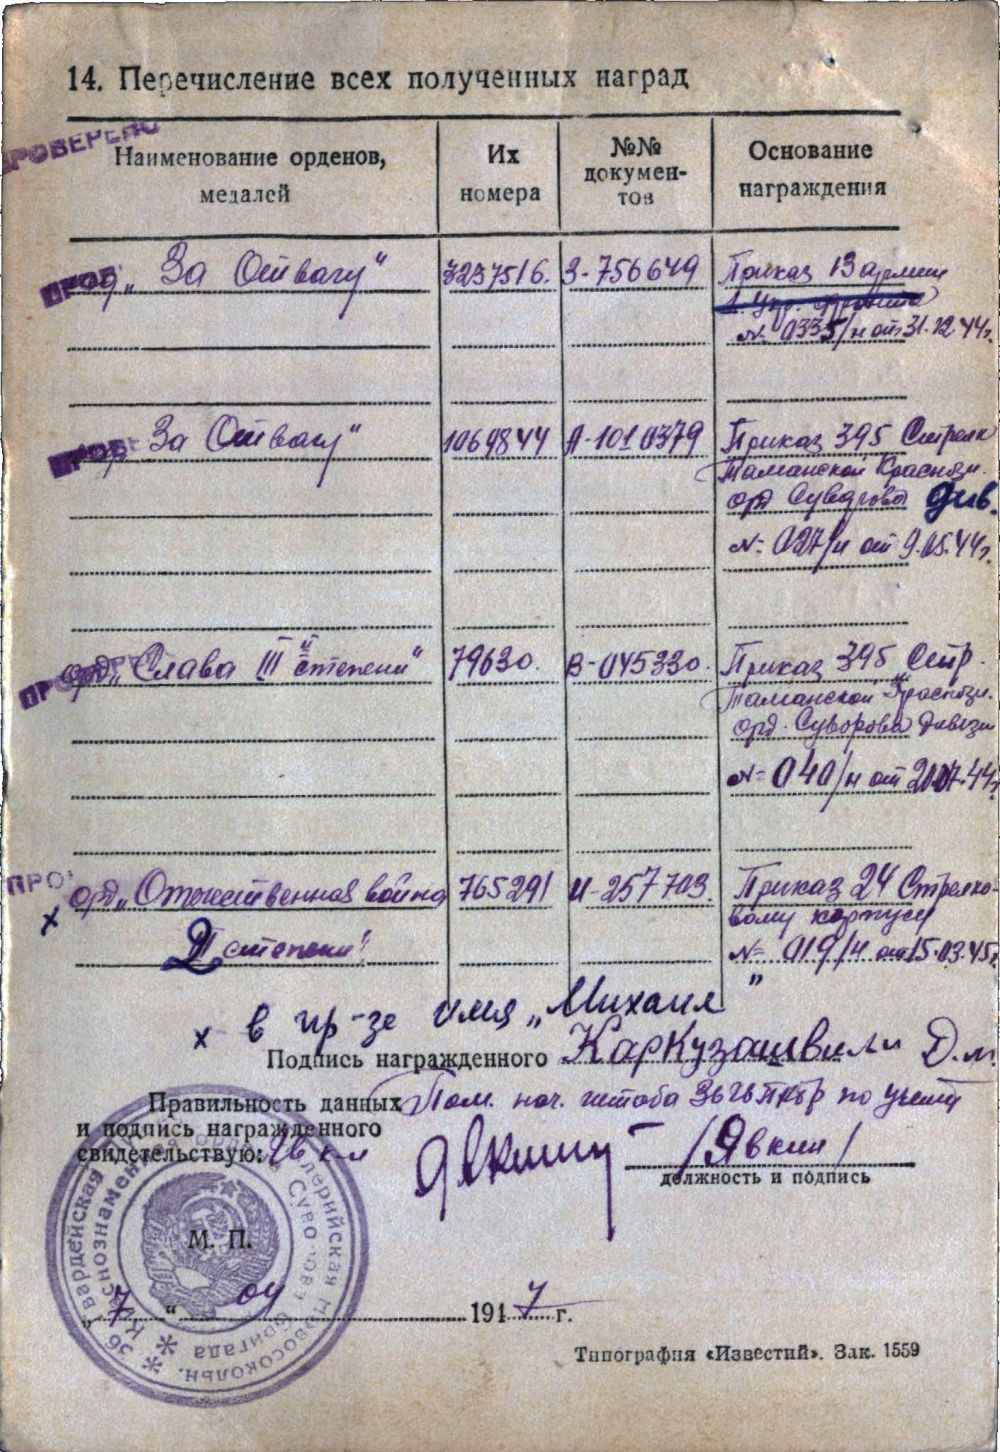 14. Перечисление всех полученных наград
ПРОВЕРЕНО
Наименование орденов, медалей
Их номера
№№ документов
Основание награждения
ПРОВ
„За Отвагу“ 3237516. З-756649 Приказ 13 армии
1. Укр. фронта
№ 0335/н от 31.12.44г.
ПРОВЕ
„За Отвагу“ 1069844 А-1010379 Приказ 395 Стрелк
Таманской Краснозн.
орд Суворова див.
№ 027/н от 9.05.44г.
ПРОВЕРЕ
орд „Слава III й степени“ 79630. В-045330. Приказ 395 Стр.
Таманской Краснозн.
орд. Суворова дивизи
№ 040/н от 20.07.44г.
ПРО
орд „Отечественная война 765291 И-257703. Приказ 24 Стрелко-
х вому корпусу
2 степени“ № 019/н от 15.03.45г
х в пр-зе имя „Михаил“
Подпись награжденного Каркузашвили Д.М.
Правильность данных и подпись награжденного свидетельствую:
Пом. нач. штаба 36 гв по учету
/Явкин/
должность и подпись
М. П.
„ 7 “ 04 1947 г.
36 гвардейская Новосокольн. Краснознаменная ордена Суворова бригада
Типография «Известий». Зак. 1559